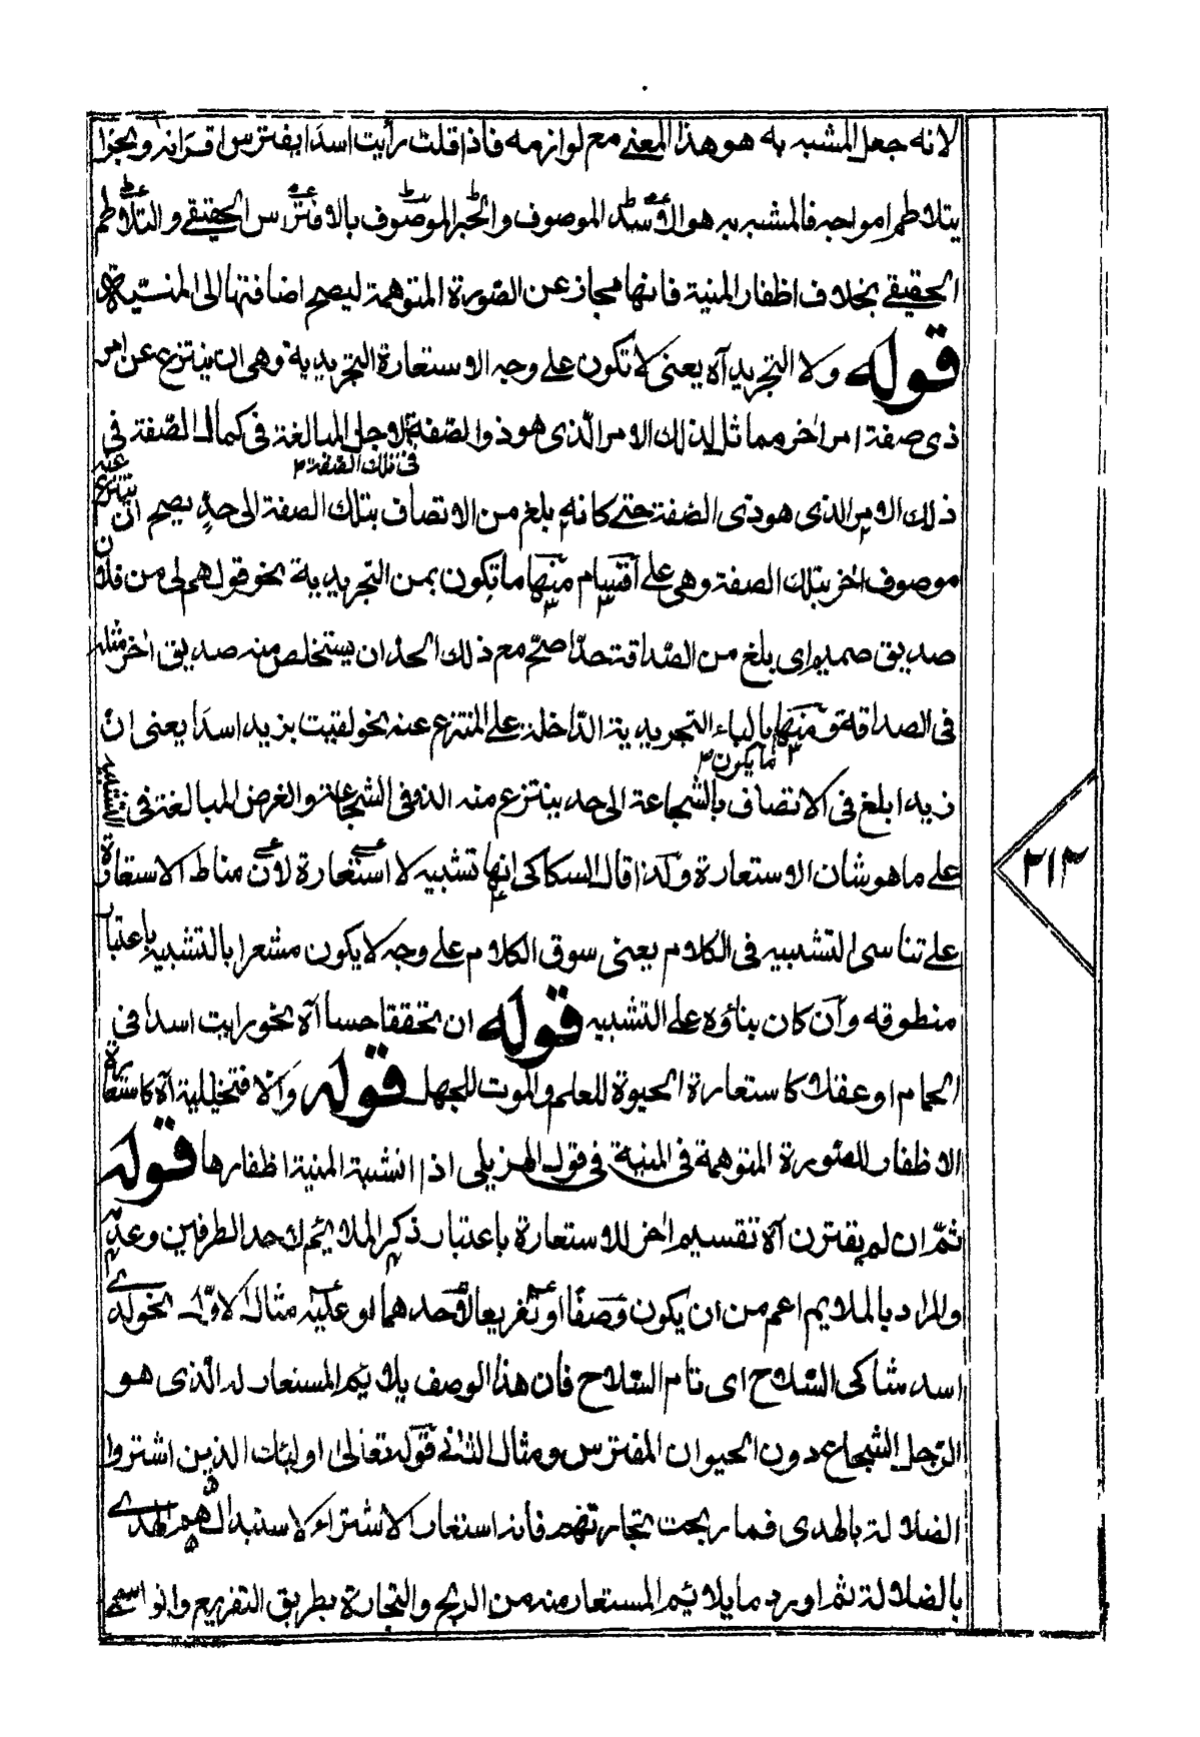 لانه جعل المشبه به هو هذا المعنى مع لوازمه فاذا قلت رأيت اسدا يفترس اقرانه وبحرا
يتلاطم امواجه فالمشبه به هو الاسد الموصوف والبحر الموصوف بالافتراس الحقيقي والتلاطم
الحقيقي بخلاف اظفار المنية فانها مجاز عن الصورة المتوهمة ليصح اضافتها الى المنية
قوله ولا التجريد آه يعنى لا تكون على وجه الاستعارة التجريدية وهى ان ينتزع عن امر
ذى صفة امر اخر مماثل لذلك الامر الذى هو ذو الصفة لاجل المبالغة فى كمال الصفة فى
فى تلك الصفة
ذلك الامر الذى هو ذى الصفة حتى كانه بلغ من الاتصاف بتلك الصفة الى حد يصح ان ينتزع عنه
موصوف اخر بتلك الصفة وهى على اقسام منها ما تكون بمن التجريدية نحو قولهم لى من فلان
صديق حميم اى بلغ من الصداقة حدا صح مع ذلك الحد ان يستخلص منه صديق اخر مثله
فى الصداقة ومنها بالباء التجريدية الداخلة على المنتزع عنه نحو لقيت بزيد اسدا يعنى ان
ما يكون
زيدا بلغ فى الاتصاف بالشجاعة الى حد ينتزع منه الذ فى الشجاعة والغرض المبالغة فى التشبيه
على ما هو شان الاستعارة وكذا قال السكاكى انها تشبيه لا استعارة لان مناط الاستعارة
على تناسى التشبيه فى الكلام يعنى سوق الكلام على وجه لا يكون مشعرا بالتشبيه باعتبار
منطوقه وان كان بناؤه على التشبيه قوله ان تحققا حسا آه نحو رايت اسدا فى
الحمام او عقلا كاستعارة الحيوة للعلم والموت للجهل قوله والا فتخييلية آه كاستعارة
الاظفار للصورة المتوهمة فى المنية فى قول الهزيلى اذا انشبة المنية اظفارها قوله
ثم ان لم يقترن آه تقسيم اخر للاستعارة باعتبار ذكر الملايم لاحد الطرفين وعدمه
والمراد بالملايم اعم من ان يكون وصفا او تفريعا لاحدهما او عليه مثال الاول نحو لدى
اسد شاكى السلاح اى تام السلاح فان هذا الوصف يلايم المستعار له الذى هو
الرجل الشجاع دون الحيوان المفترس ومثال الثانى قوله تعالى اولئك الذين اشتروا
الضلالة بالهدى فما ربحت تجارتهم فانه استعار الاشتراء لاستبدالهم الهدى
بالضلالة ثم اورد ما يلايم المستعار منه من الربح والتجارة بطريق التفريع وانواسمى
٢١٣